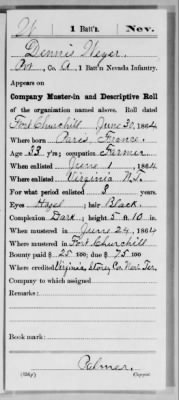 W | 1 Batt'n | Nev.
Dennis Weyer
Pvt., Co. A, 1 Batt'n Nevada Infantry.
Appears on
Company Muster-in and Descriptive Roll
of the organization named above. Roll dated
Fort Churchill June 30, 1864
Where born Paris, France.
Age 33 y'rs; occupation Farmer
When enlisted June 1, 1864
Where enlisted Virginia N.T.
For what period enlisted 3 years.
Eyes Hazel; hair Black.
Complexion Dark; height 5 ft. 10 in.
When mustered in June 24, 1864
Where mustered in Fort Churchill
Bounty paid $25 100; due $75 100
Where credited Virginia, Storey Co. Nev. Ter.
Company to which assigned
Remarks:
Book mark:
Palmer.
(326g) Copyist.